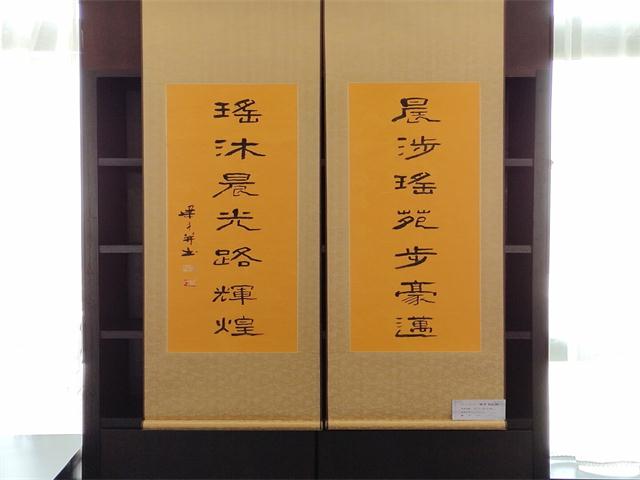 晨涉瑤苑步豪邁
瑤沐晨光路輝煌